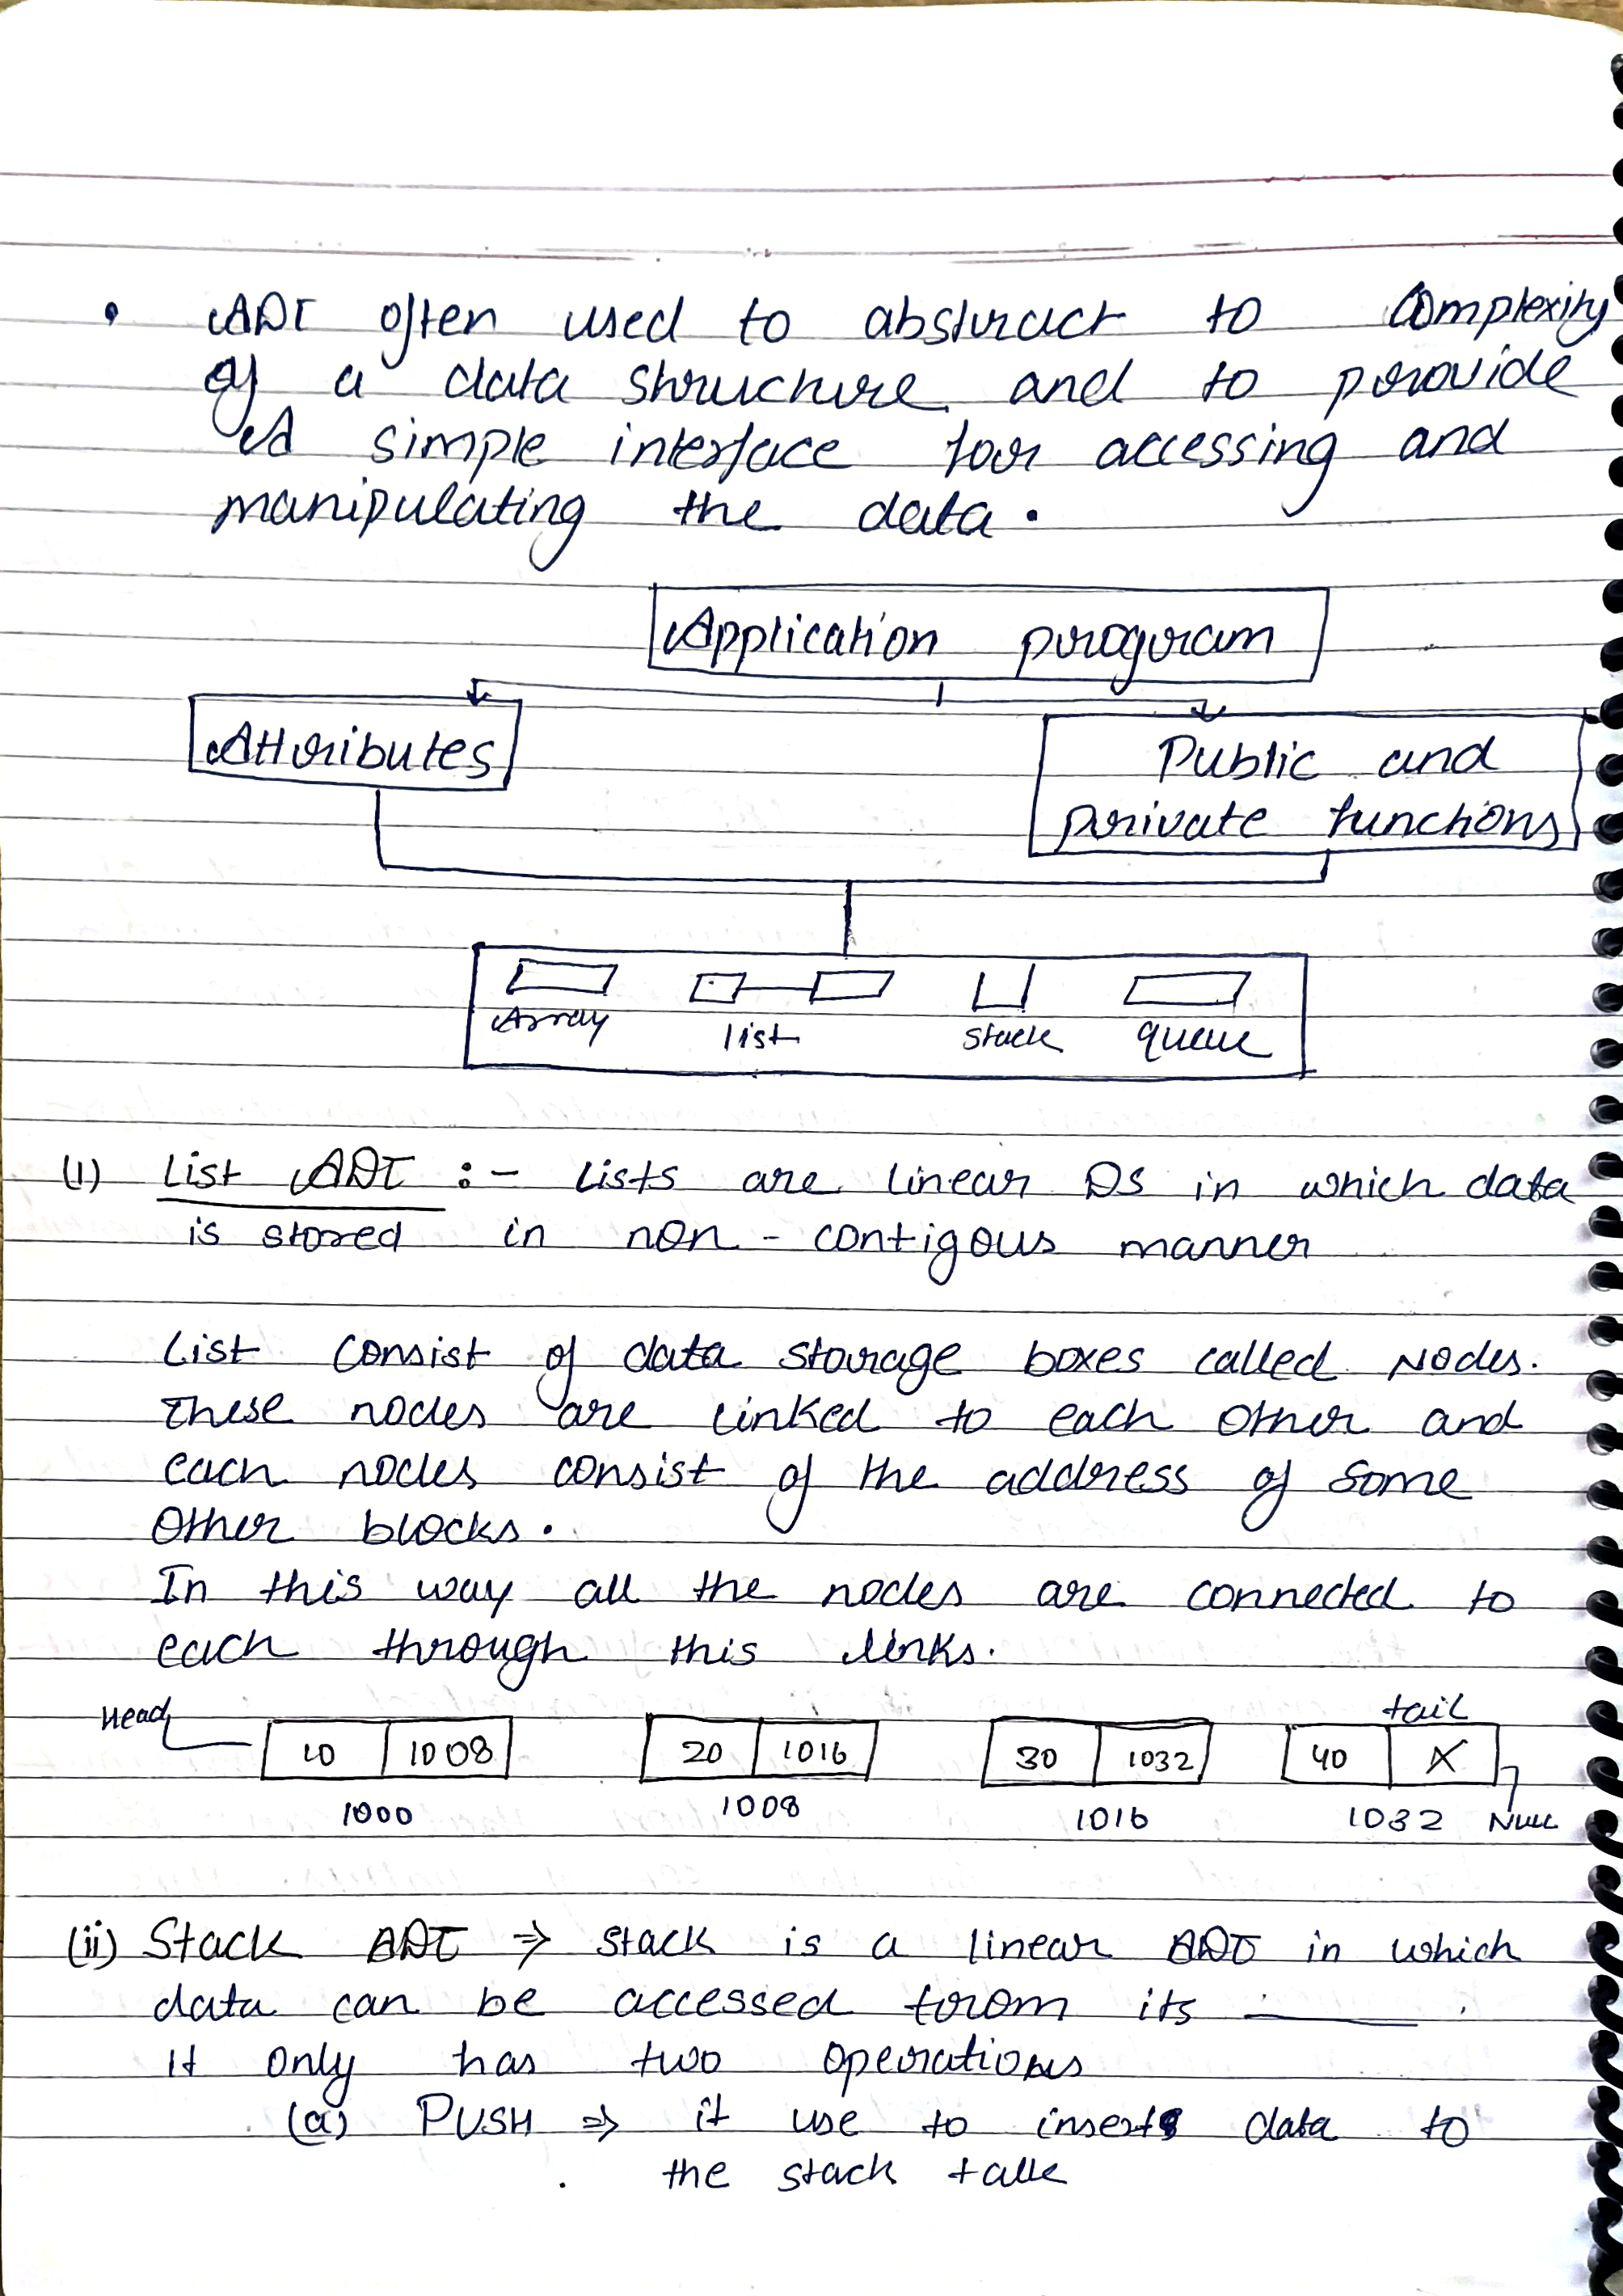 • ADT often used to abstract to complexity
of a data structure and to provide
A simple interface for accessing and
manipulating the data.
Application program
Attributes
Public and
private functions
Array list stack queue
(1) List ADT :- Lists are linear DS in which data
is stored in non-contigous manner
List consist of data storage boxes called Nodes.
These nodes are linked to each other and
each nodes consist of the address of some
other blocks.
In this way all the nodes are connected to
each through this links.
Head tail
10 1008 20 1016 30 1032 40 X
1000 1008 1016 1032 NULL
(ii) Stack ADT ⇒ stack is a linear ADT in which
data can be accessed from its ______.
It only has two operations
(a) PUSH ⇒ it use to inserts data to
the stack